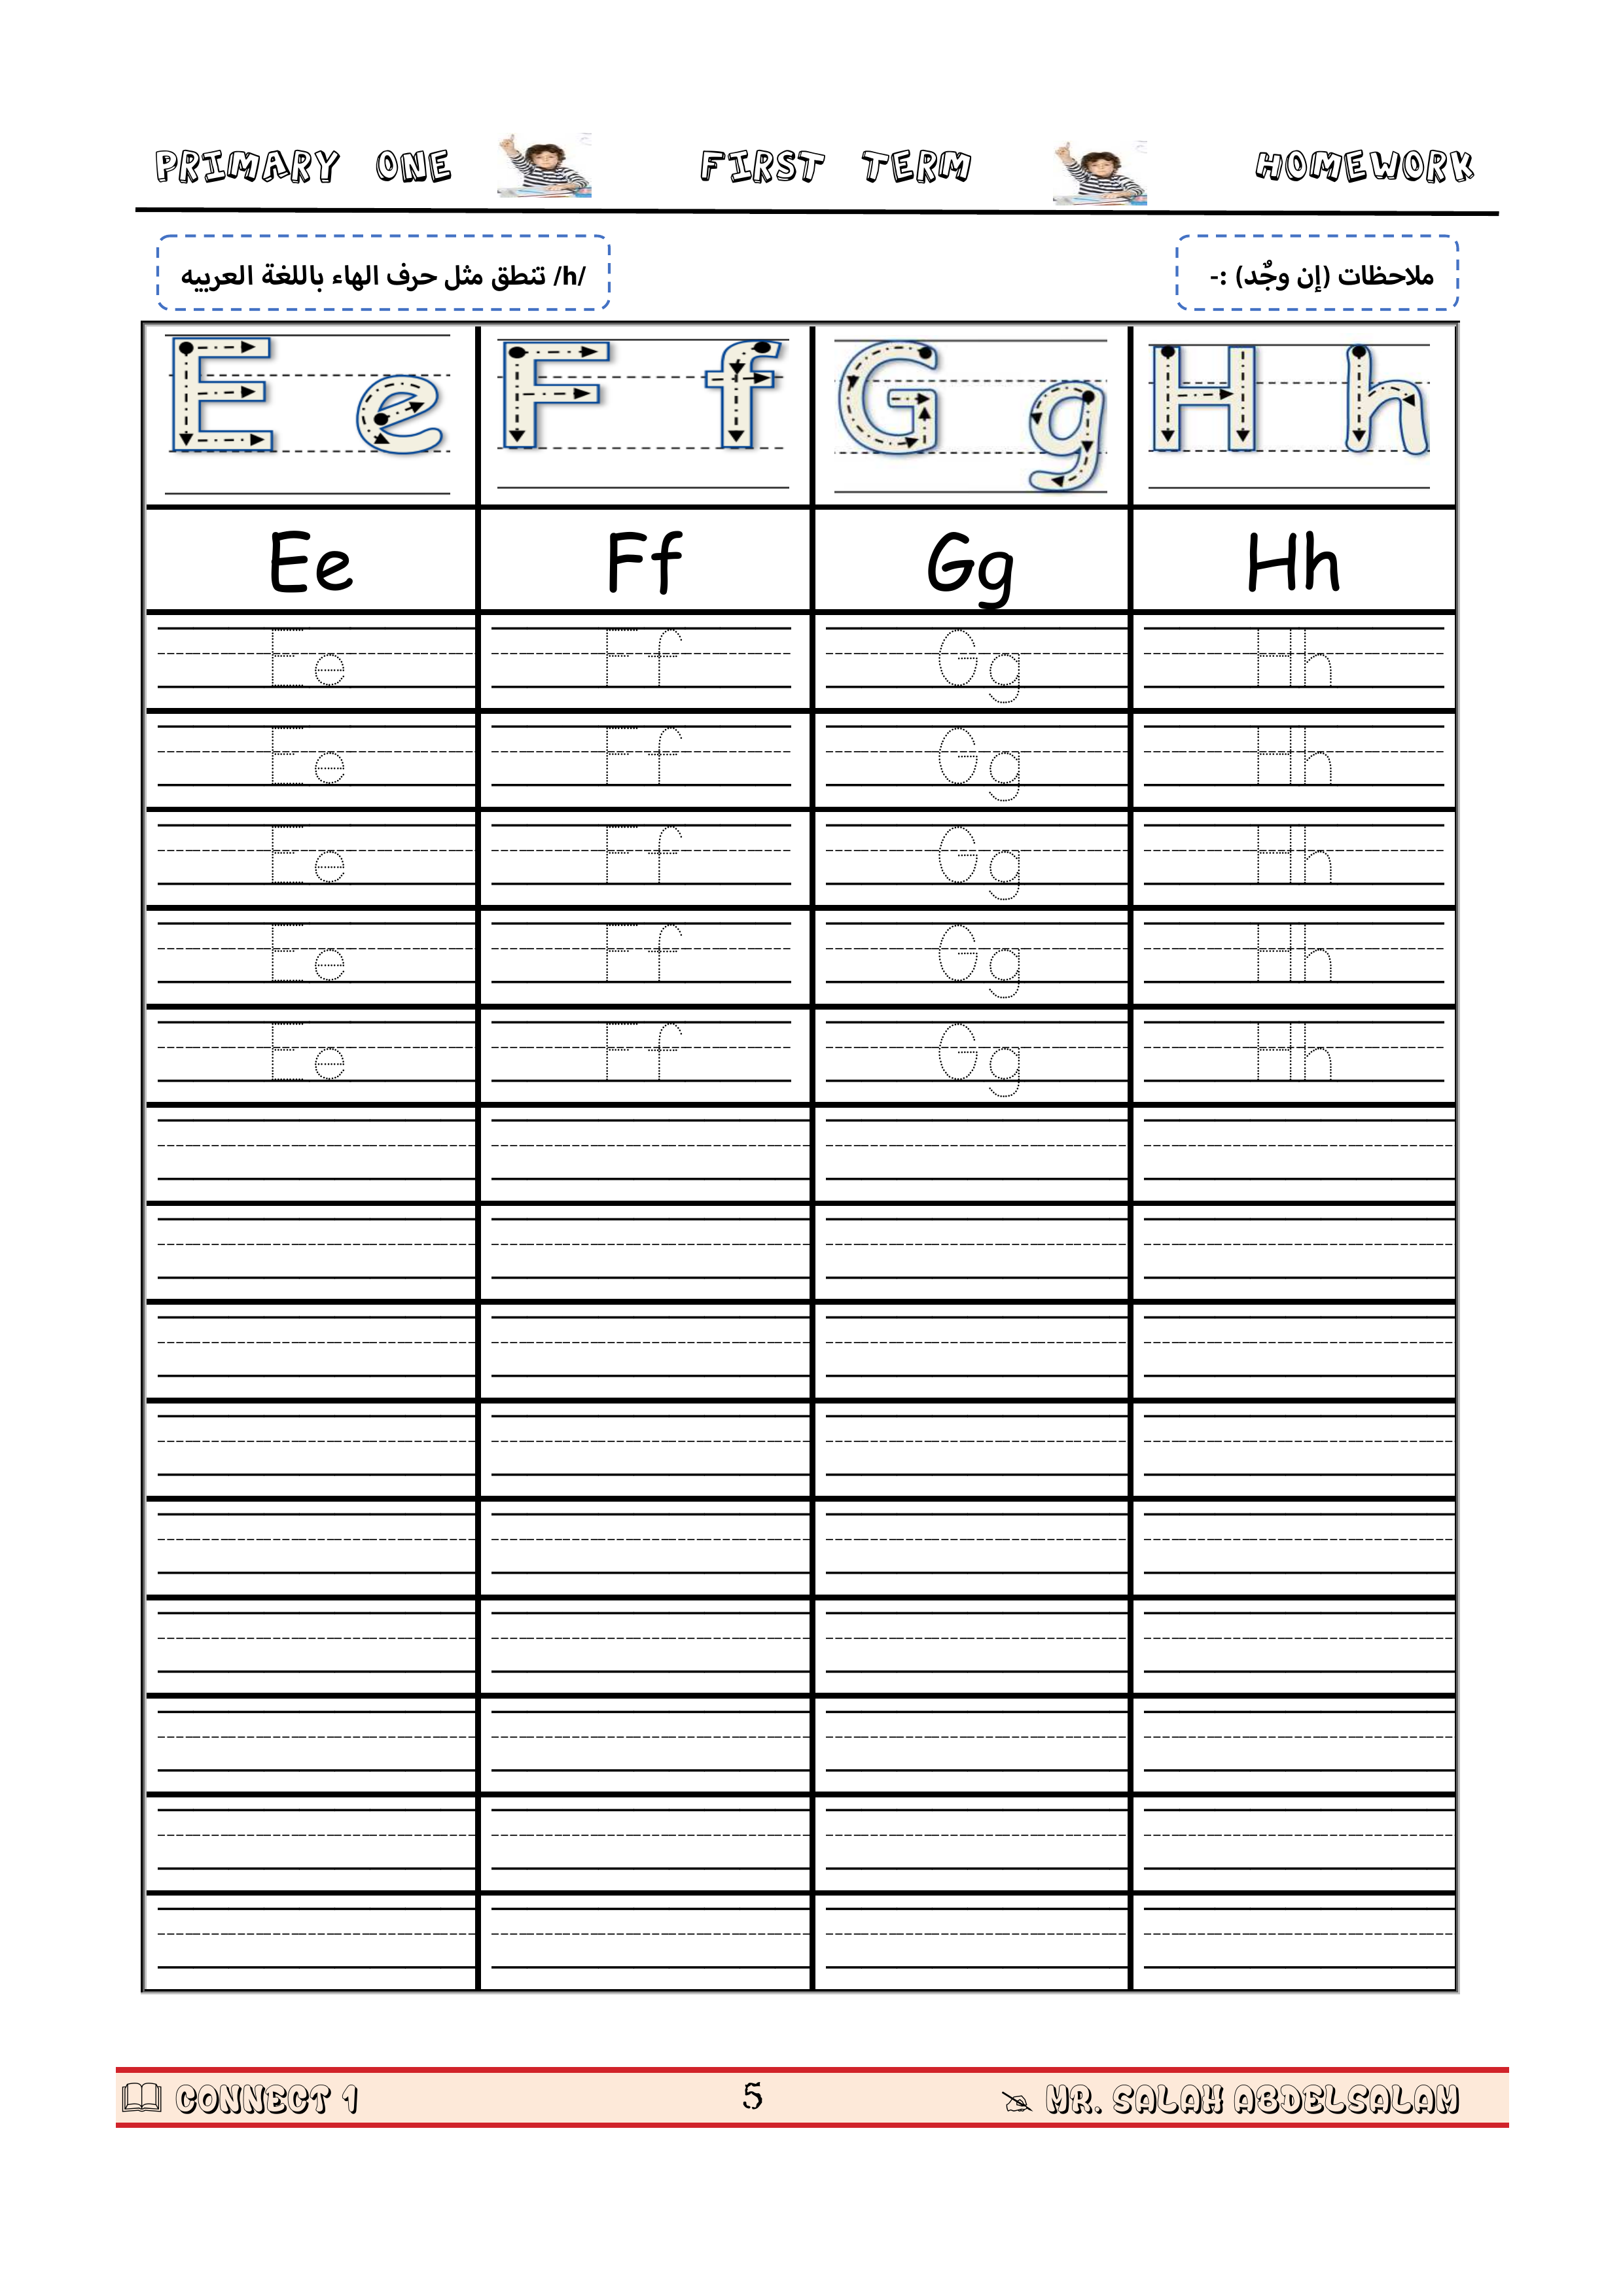 PRIMARY ONE FIRST TERM HOMEWORK
ملاحظات (إن وجٌد) :-
/h/ تنطق مثل حرف الهاء باللغة العربيه
E e F f G g H h
Ee Ff Gg Hh
Ee Ff Gg Hh
Ee Ff Gg Hh
Ee Ff Gg Hh
Ee Ff Gg Hh
Ee Ff Gg Hh
CONNECT 1 5 MR. SALAH ABDELSALAM